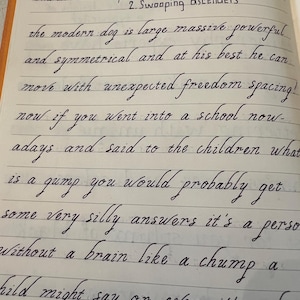 2. Swooping Ascenders
the modern dog is large massive powerful
and symmetrical and at his best he can
move with unexpected freedom spacing!
now if you went into a school now-
adays and said to the children what
is a gump you would probably get
some very silly answers it's a perso
without a brain like a chump a
hild might say or